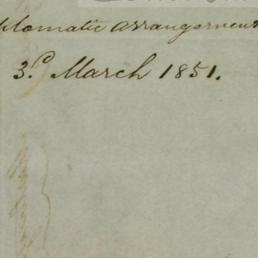 plomatic arrangement
3.d March 1851.